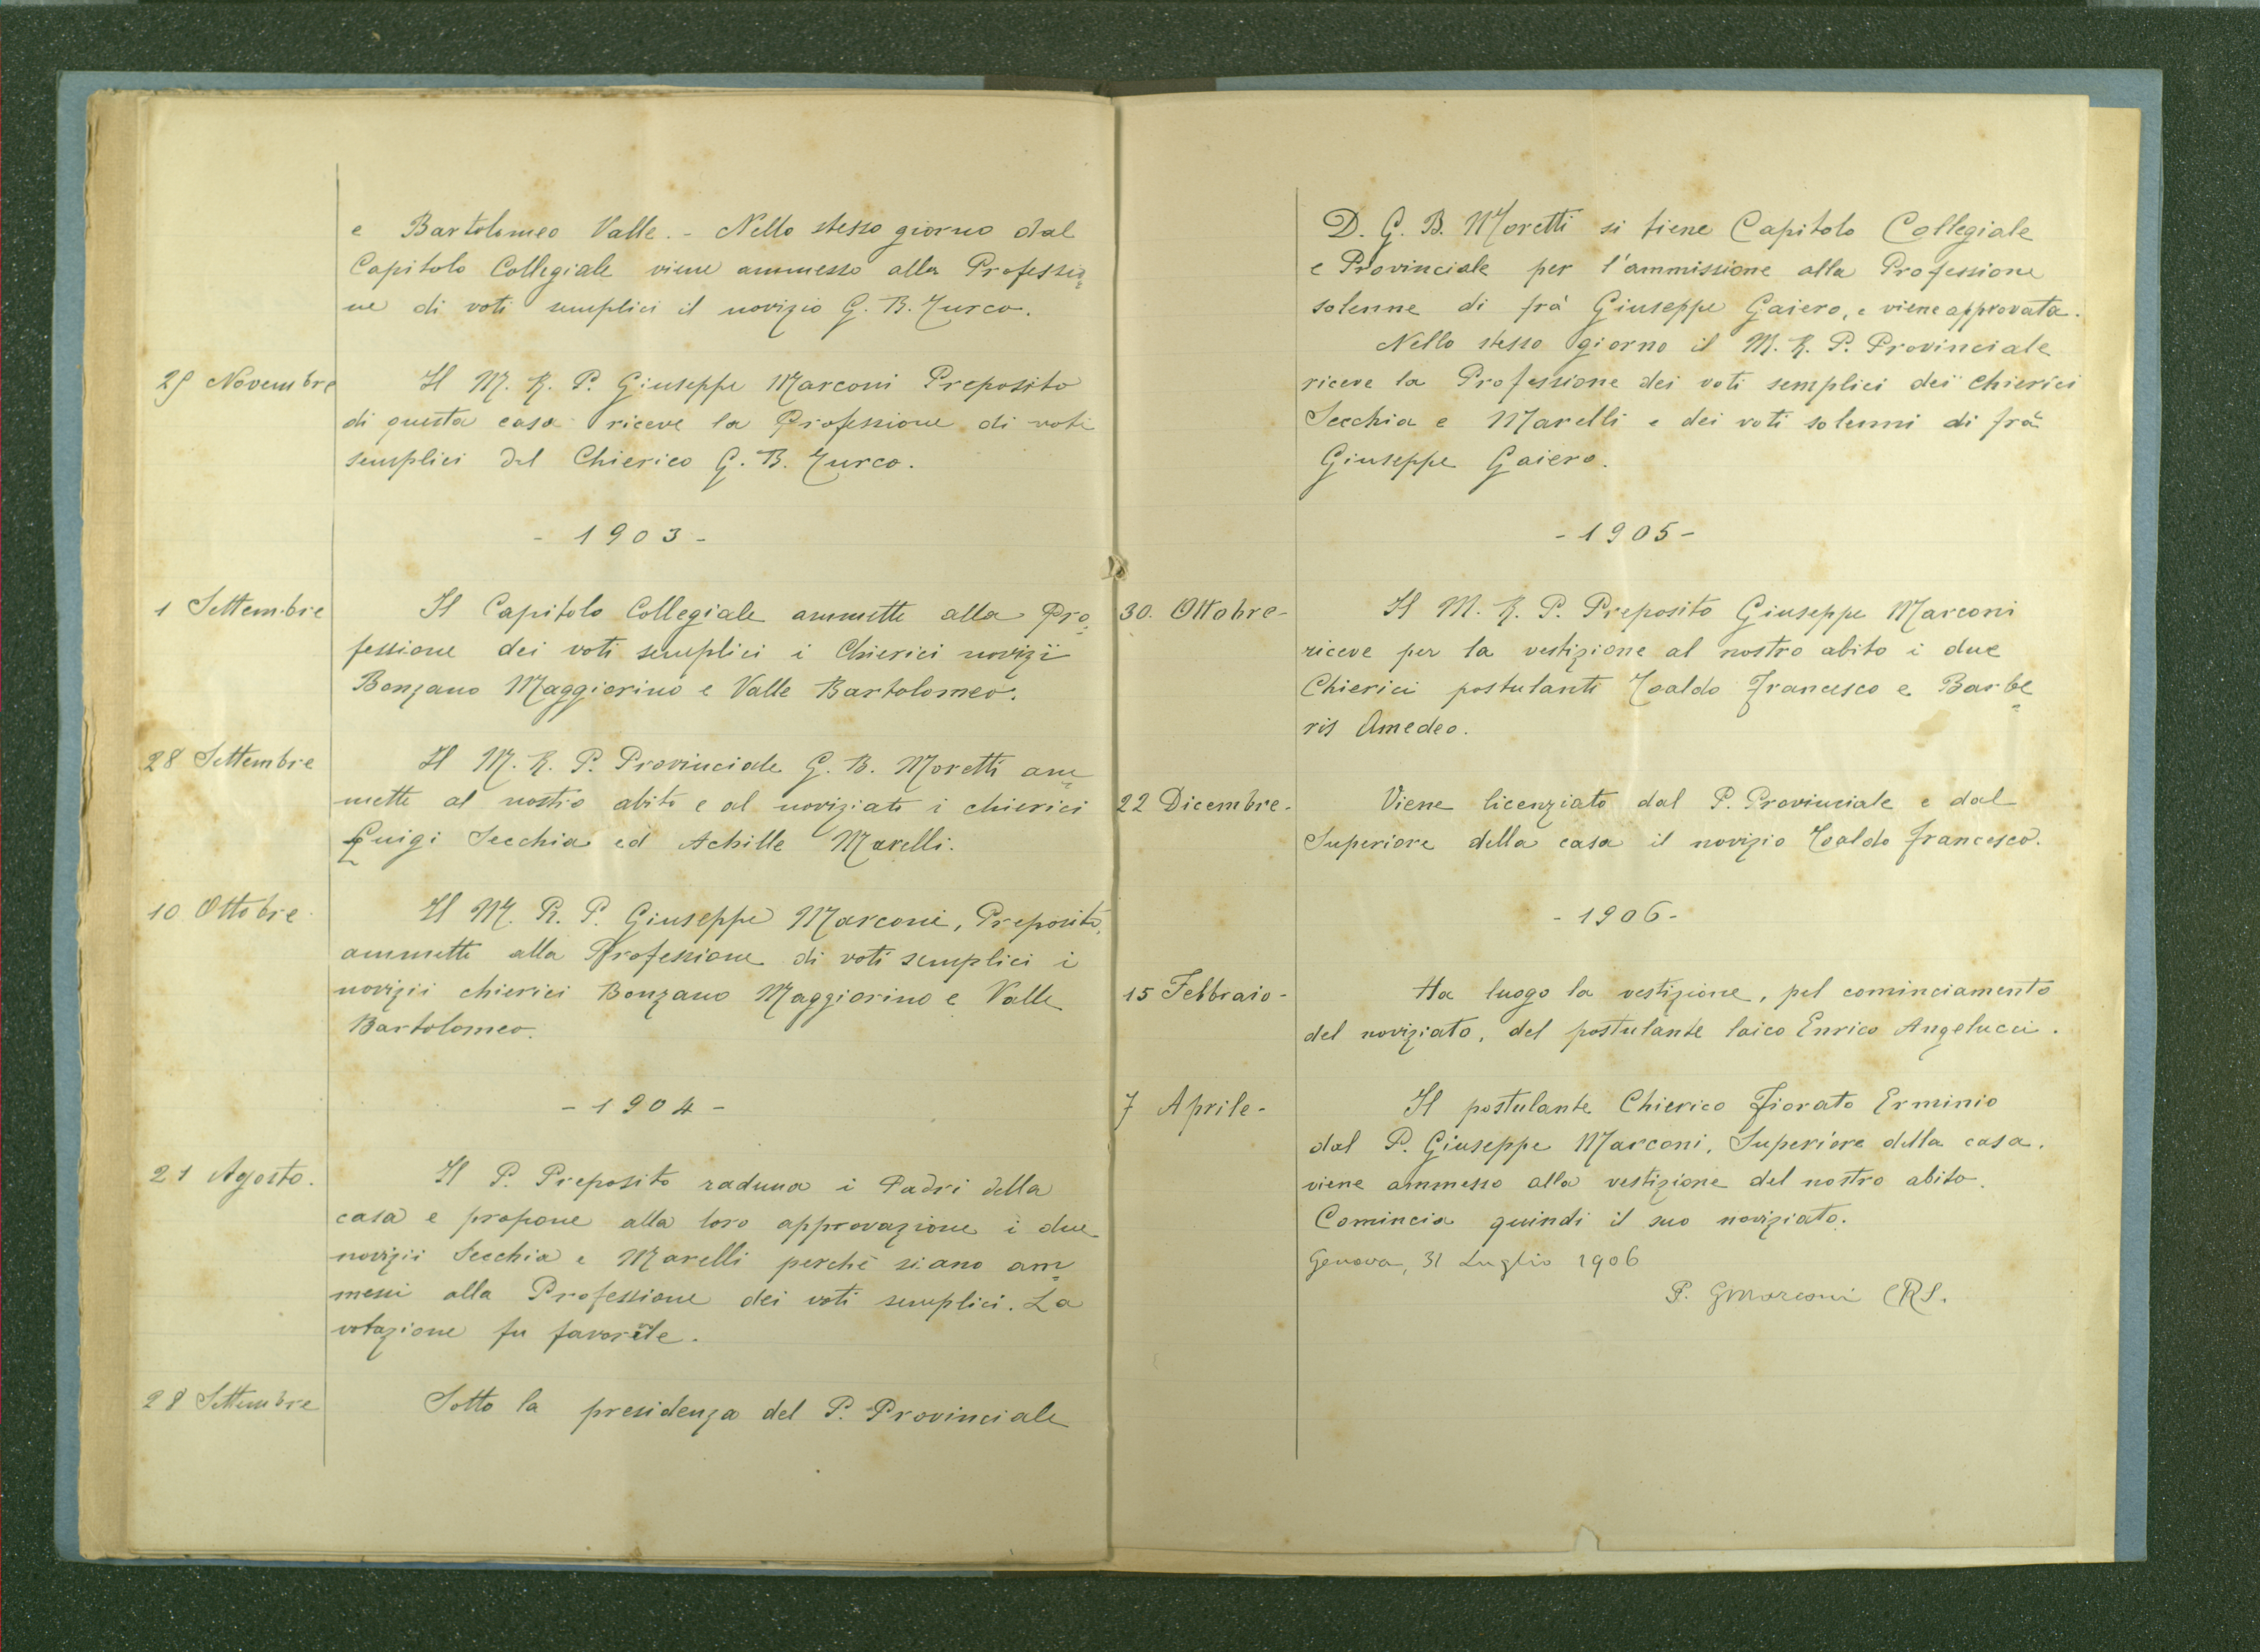 e Bartolomeo Valle. - Nello stesso giorno dal
Capitolo Collegiale viene ammesso alla Professio=
ne di voti semplici il novizio G. B. Turco.
29 Novembre Il M. R. P. Giuseppe Marconi Preposito
di questa casa riceve la Professione di voti
semplici del Chierico G. B. Turco.
- 1903 -
1 Settembre Il Capitolo Collegiale ammette alla Pro=
fessione dei voti semplici i Chierici novizi
Bonzano Maggiorino e Valle Bartolomeo.
28 Settembre Il M. R. P. Provinciale G. B. Moretti am=
mette al nostro abito e al noviziato i chierici
Luigi Secchia ed Achille Marelli.
10 Ottobre Il M. R. P. Giuseppe Marconi, Preposito,
ammette alla Professione di voti semplici i
novizii chierici Bonzano Maggiorino e Valle
Bartolomeo.
- 1904 -
21 Agosto. Il P. Preposito raduna i Padri della
casa e propone alla loro approvazione i due
novizii Secchia e Marelli perchè siano am=
messi alla Professione dei voti semplici. La
votazione fu favorevole.
28 Settembre Sotto la presidenza del P. Provinciale
D. G. B. Moretti si tiene Capitolo Collegiale
e Provinciale per l'ammissione alla Professione
solenne di frà Giuseppe Gaiero, e viene approvata.
Nello stesso giorno il M. R. P. Provinciale
riceve la Professione dei voti semplici dei chierici
Secchia e Marelli e dei voti solenni di frà
Giuseppe Gaiero.
- 1905 -
30. Ottobre - Il M. R. P. Preposito Giuseppe Marconi
riceve per la vestizione al nostro abito i due
Chierici postulanti Toaldo Francesco e Barbe=
ris Amedeo.
22 Dicembre - Viene licenziato dal P. Provinciale e dal
Superiore della casa il novizio Toaldo Francesco.
- 1906 -
15 Febbraio - Ha luogo la vestizione, pel cominciamento
del noviziato, del postulante laico Enrico Angelucci.
7 Aprile - Il postulante Chierico Fiorato Erminio
dal P. Giuseppe Marconi, Superiore della casa,
viene ammesso alla vestizione del nostro abito.
Comincia quindi il suo noviziato.
Genova, 31 Luglio 1906
P. GMarconi CRS.